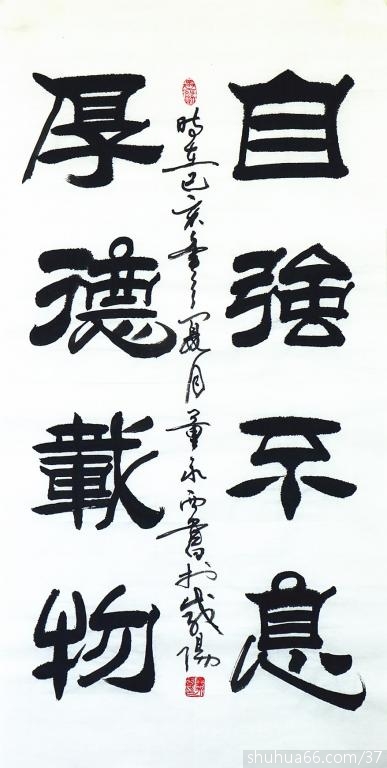 自強不息
厚德載物
時在己亥年之夏月董永西書於咸陽
shuhua66.com/37